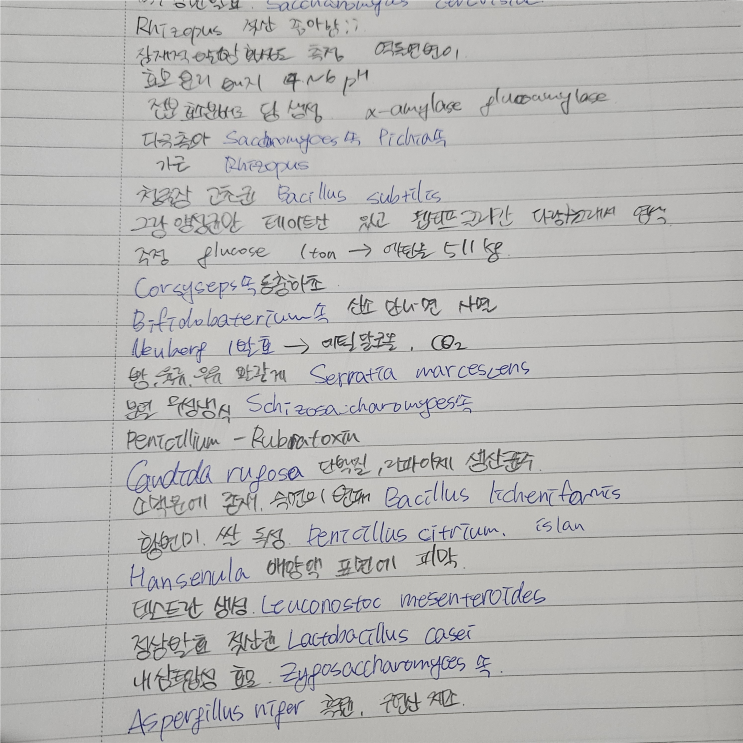 발효. Saccharomyces cerevisiae
Rhizopus 젖산 좋아함;;
잠재적 측정 역돌연변이
효모 분리 배지 4~6 pH
전분 당 생성 α-amylase glucoamylase
다극출아 Saccharomyces속 Pichia속
가근 Rhizopus
청국장 고초균 Bacillus subtilis
그람 양성균만 테이트산 있고 펩티드
측정 glucose 1ton → 에탄올 511kg.
Corsyseps속 동충하초
Bifidobaterium속 산소 만나면 사멸
Neuberg 1발효 → 에틸알코올, CO2
빵, 육류, 우유 빨갛게 Serratia marcescens
분열 무성생식 Schizosaccharomyces속
Penicillium - Rubratoxin
Candida rugosa 단백질, 리파아제 생산균주
에 존재. Bacillus licheniformis
황변미. 쌀 독성. Penicillus citrium. islan
Hansenula 배양액 표면에 피막.
덱스트란 생성. Leuconostoc mesenteroides
정상발효 젖산균 Lactobacillus casei
내삼투압성 효모. Zygosaccharomyces 속.
Aspergillus niger 흑변, 구연산 제조.